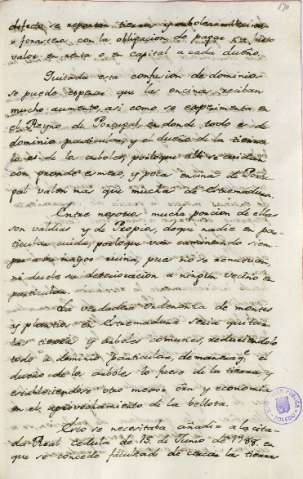 170
con la obligacion de pagar su justo
valor en renta o en capital a cada dueño.
Quitada esta confusion de dominios
se puede esperar que las encinas reciban
mucho aumento, asi como se experimenta en
el Reyno de Portugal en donde todo es de
dominio particular, y el dueño de la tierra
lo es de los arboles, porque alli se cuidan
con grande esmero, y pocas encinas de Portu
gal valen mas que muchas de Estremadura.
Entre nosotros mucha porcion de ellas
son valdias y de Propios, de que nadie en par
ticular cuida, porque van caminando siem
pre a su mayor ruina, pues no se
ni duele su deterioracion a ningun vecino en
particular.
La verdadera ordenanza de montes
y plantios en Estremadura seria quitar
las tierras y arboles comunes, reduciendolo
todo a dominio particular, de manera q.e el
dueño de los arboles lo fuese de la tierra, y
estableciendose otro metodo y economia
en el aprovechamiento de la bellota.
Solo se necesitaba añadir a la cita
da Real Cedula de 15 de Junio de 1788 en
que se concede facultad de cercar las tierras
TOLEDO